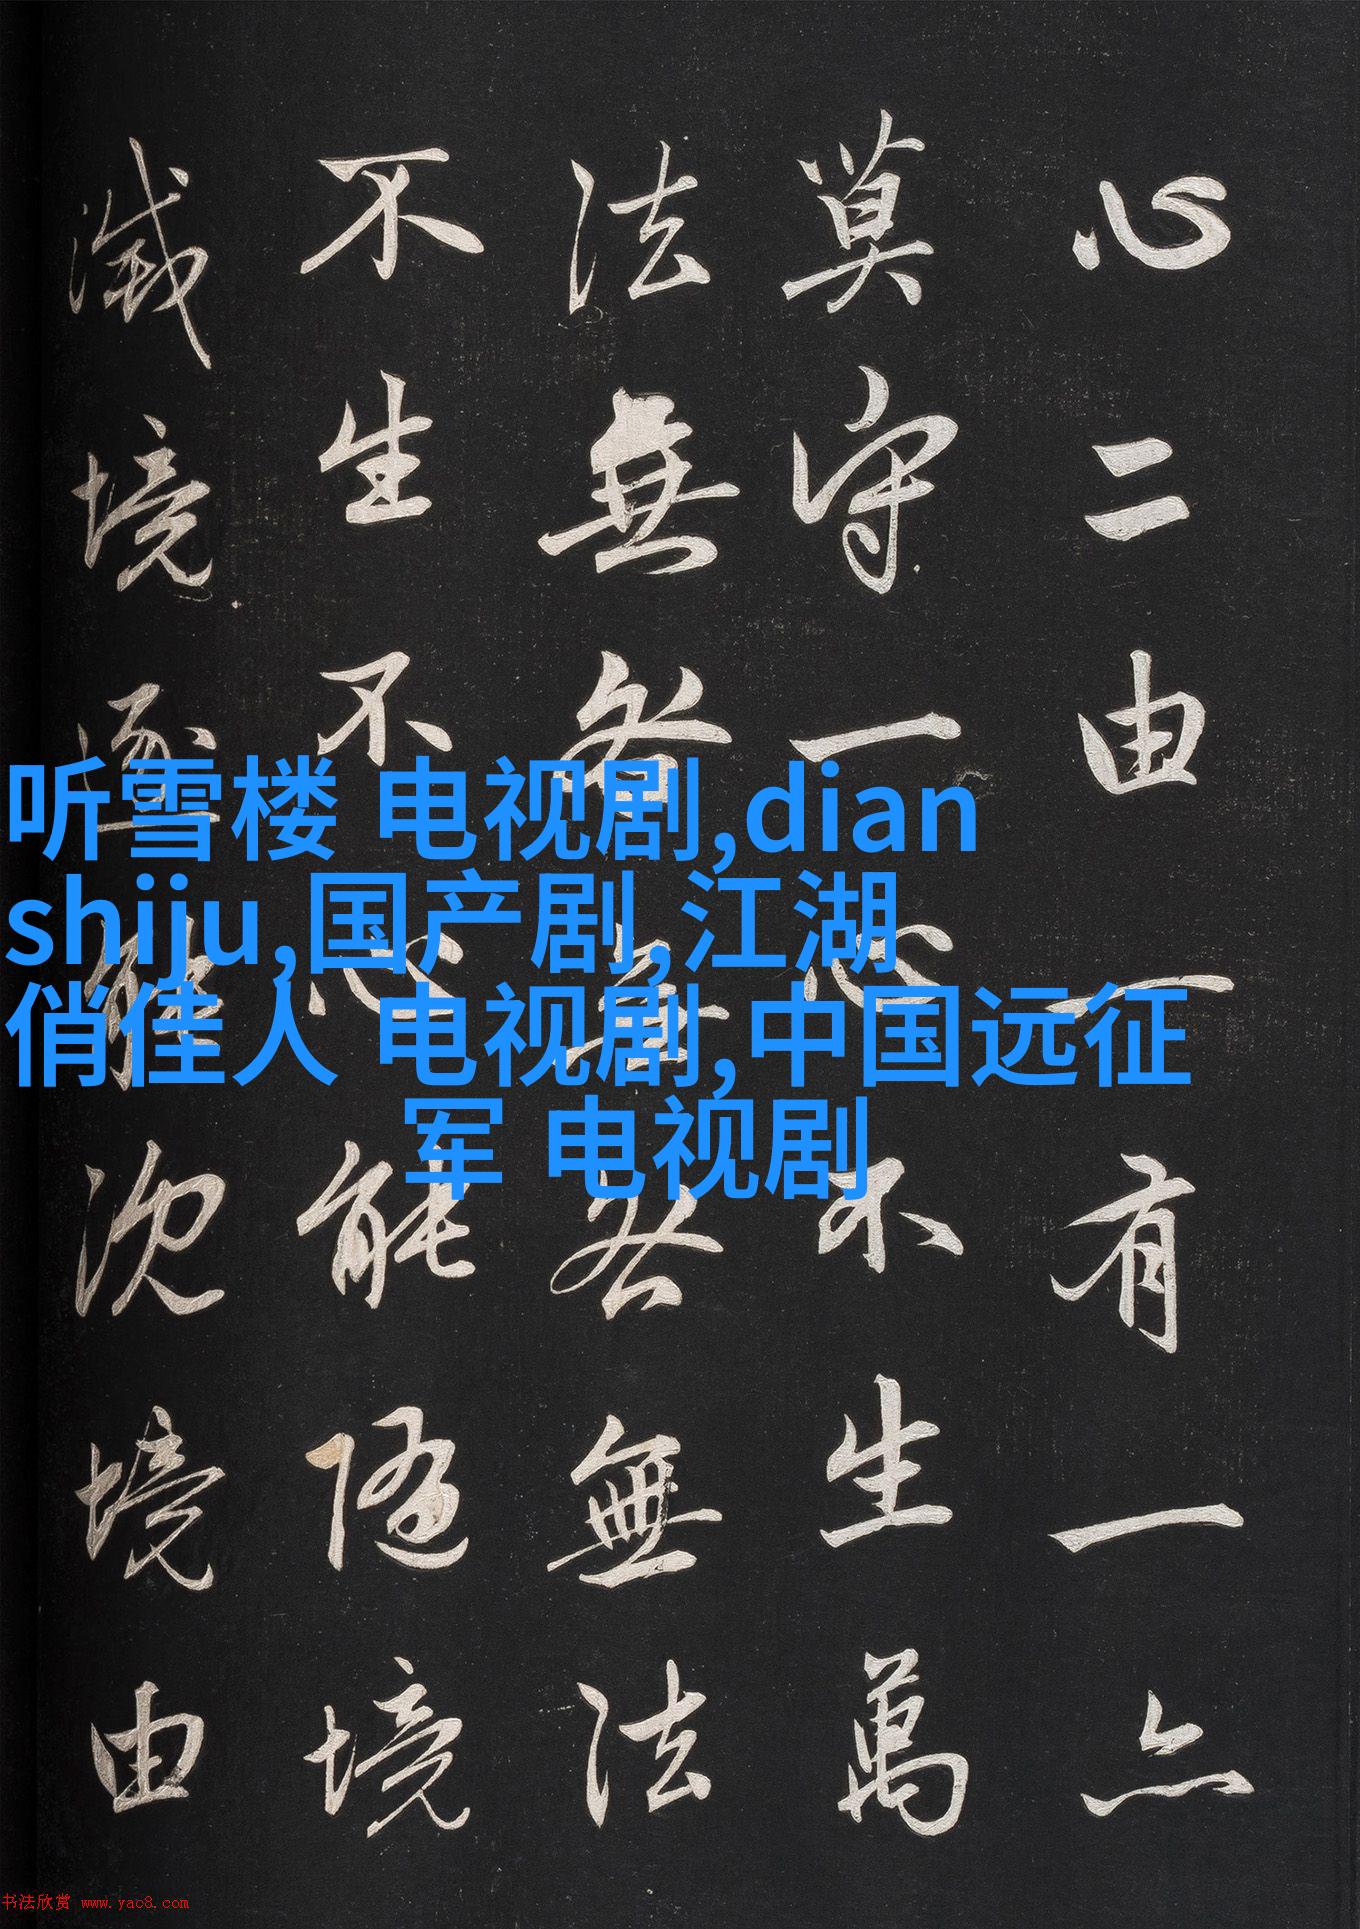 心二由一有一亦
莫守一心不生萬
法無咎無咎無法
不生不心能隨境
滅境逐能沉境由
听雪楼 电视剧,dian
shiju,国产剧,江湖
俏佳人 电视剧,中国远征
军 电视剧
书法欣赏 www.yac8.com